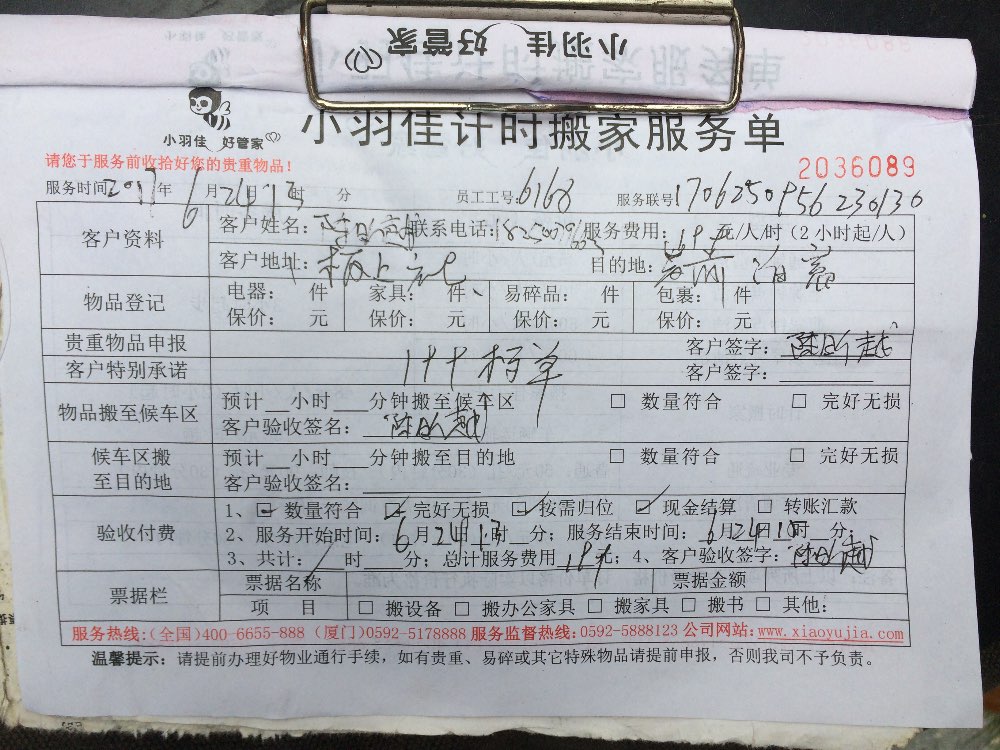 小羽佳 好管家
小羽佳 好管家
小羽佳计时搬家服务单
请您于服务前收拾好您的贵重物品！
2036089
服务时间2017年6月24日13时 分 员工工号:6168 服务联号1706250956230130
客户资料
客户姓名: 联系电话: 服务费用: 元/人/时（2小时起/人）
客户地址: 板上社 目的地:
物品登记
电器: 件 家具: 件 易碎品: 件 包裹: 件
保价: 元 保价: 元 保价: 元 保价: 元
贵重物品申报 客户签字:
客户特别承诺 客户签字:
物品搬至候车区
预计__小时___分钟搬至候车区 □ 数量符合 □ 完好无损
客户验收签名:
候车区搬至目的地
预计__小时___分钟搬至目的地 □ 数量符合 □ 完好无损
客户验收签名:
验收付费
1、☑ 数量符合 ☑ 完好无损 ☑ 按需归位 ☑ 现金结算 □ 转账汇款
2、服务开始时间: 6月24日13时__分; 服务结束时间: 6月24日 时__分;
3、共计: 时 分; 总计服务费用 元; 4、客户验收签字:
票据栏
票据名称 票据金额
项 目 □ 搬设备 □ 搬办公家具 □ 搬家具 □ 搬书 □ 其他:
服务热线:(全国)400-6655-888 (厦门)0592-5178888 服务监督热线:0592-5888123 公司网站:www.xiaoyujia.com
温馨提示: 请提前办理好物业通行手续，如有贵重、易碎或其它特殊物品请提前申报，否则我司不予负责。